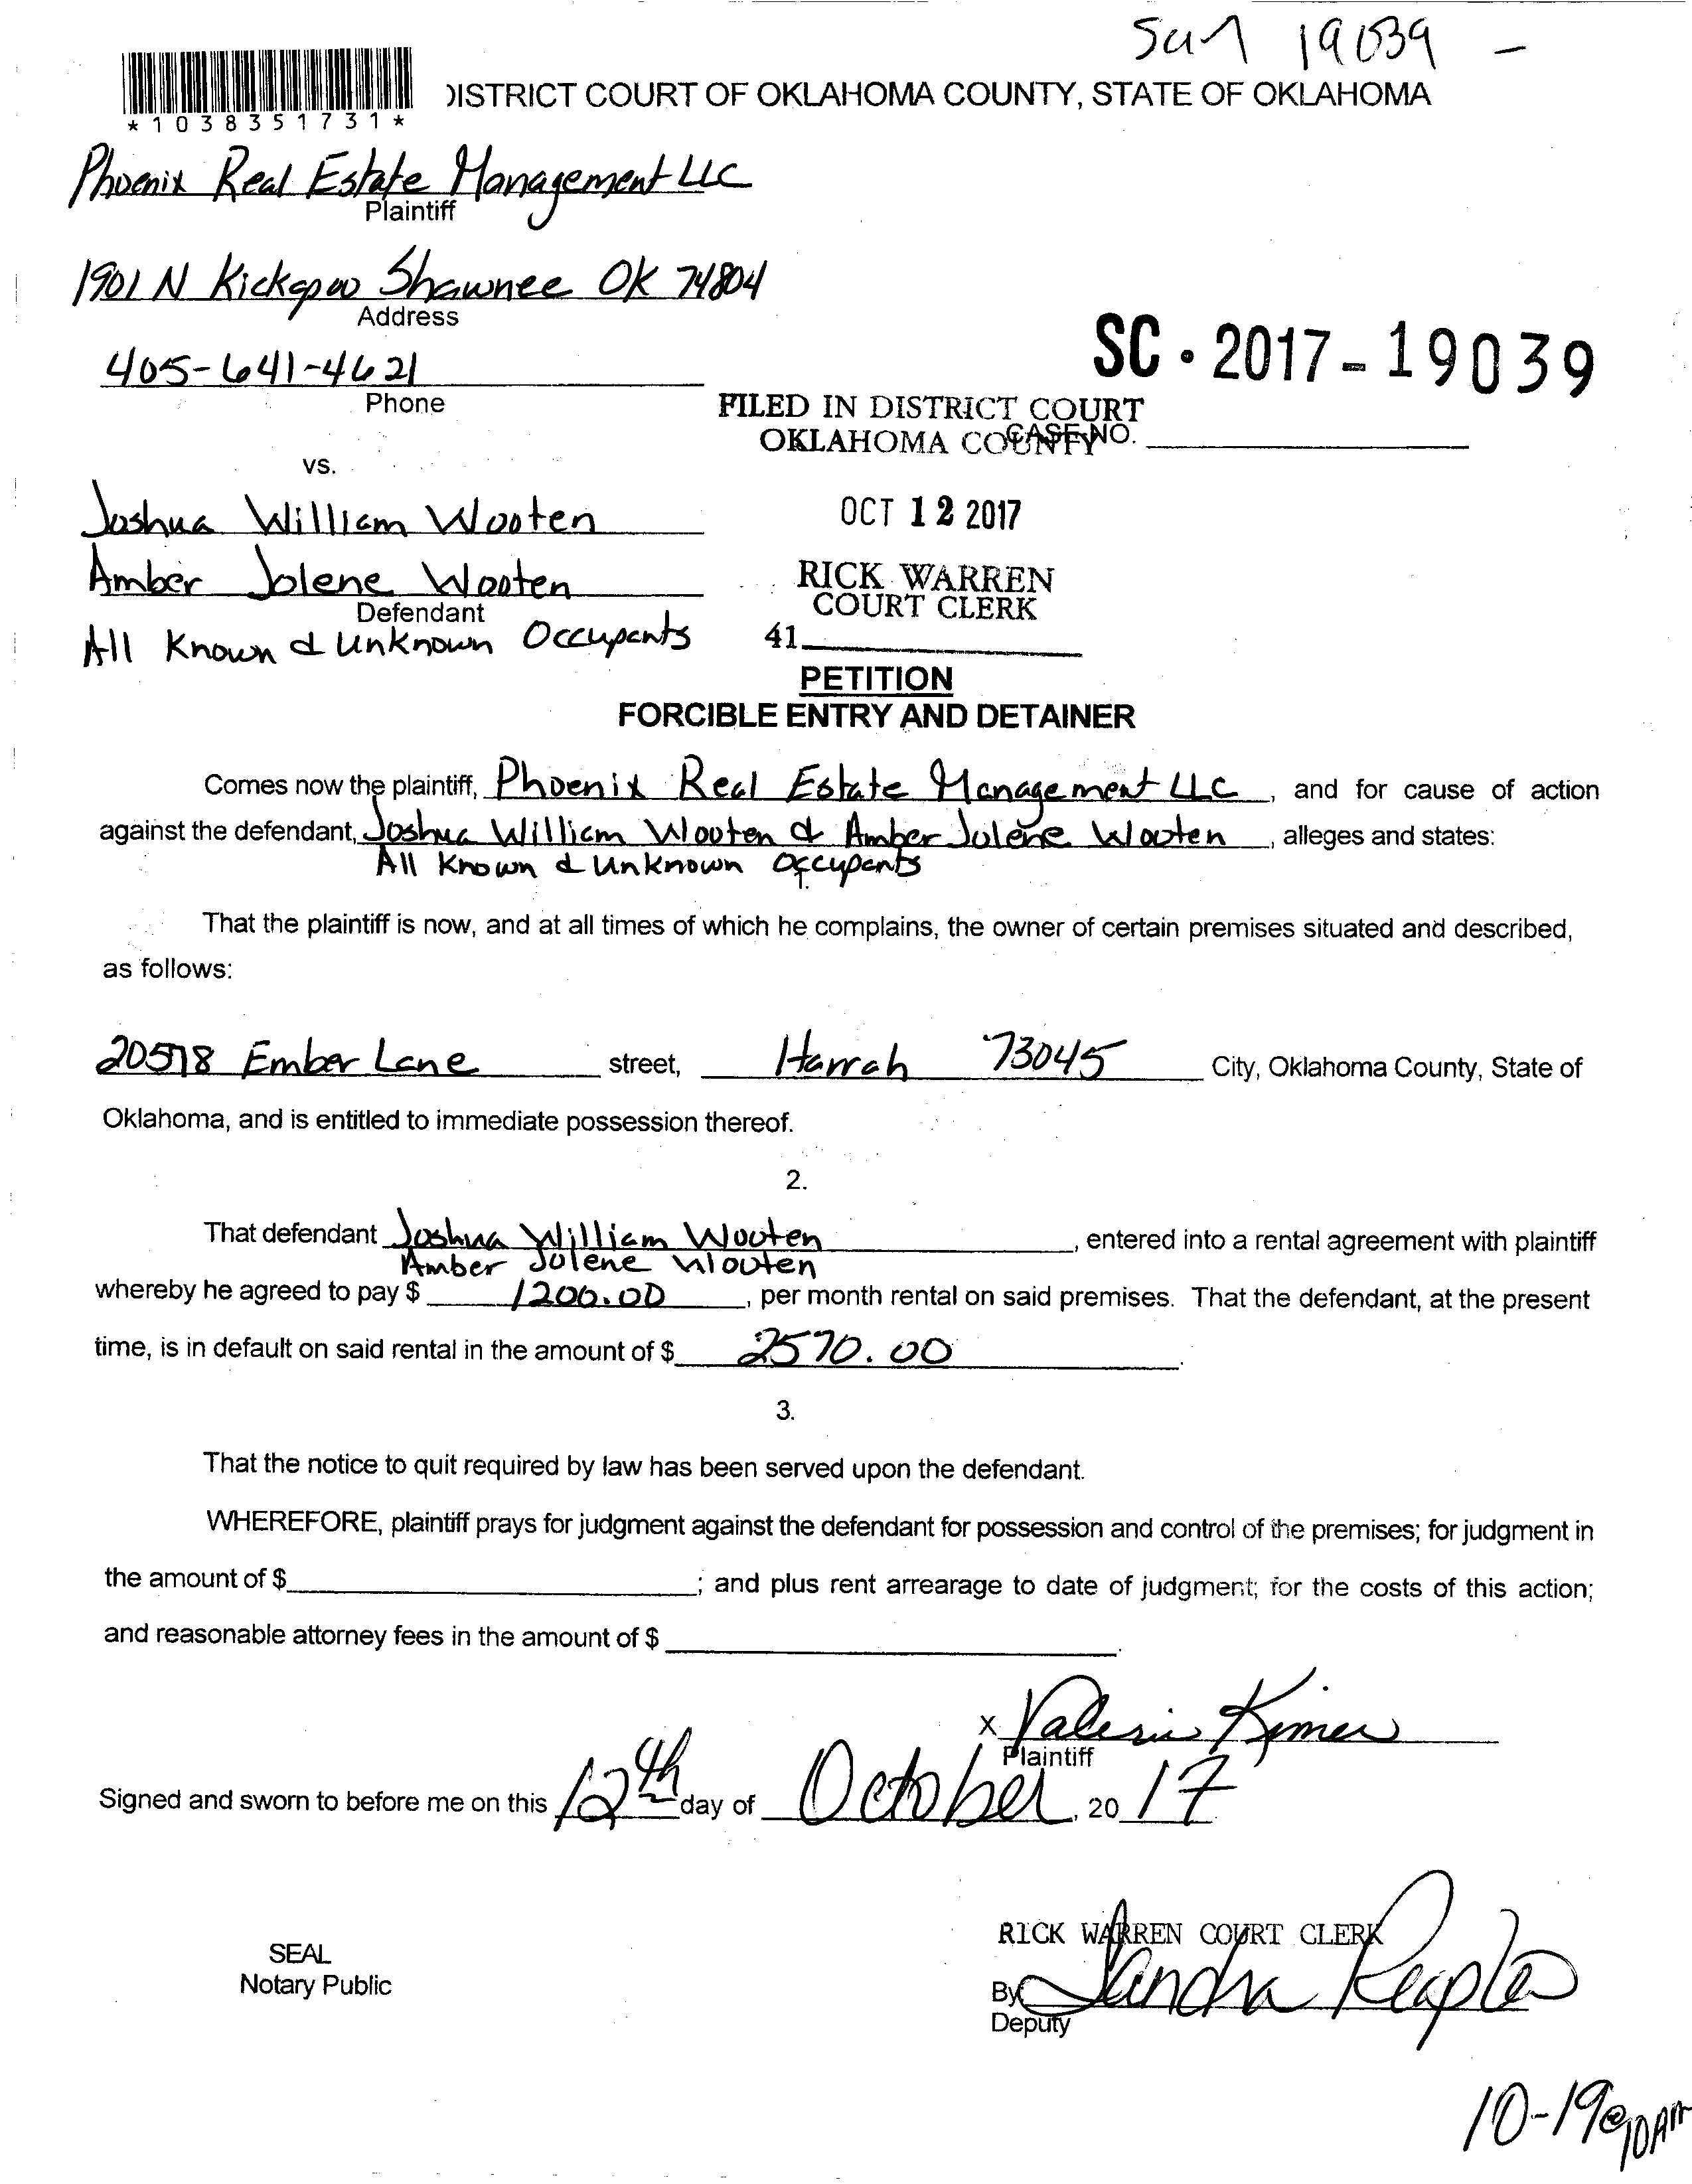 19039 -
DISTRICT COURT OF OKLAHOMA COUNTY, STATE OF OKLAHOMA
*1038351731*
Phoenix Real Estate Management LLC
Plaintiff
1901 N Kickapoo Shawnee OK 74804
Address
405-641-4621
Phone
SC-2017-19039
FILED IN DISTRICT COURT
OKLAHOMA COUNTY
CASE NO.
vs.
Joshua William Wooten
OCT 12 2017
Amber Jolene Wooten
Defendant
RICK WARREN
COURT CLERK
All Known & Unknown Occupants
41
PETITION
FORCIBLE ENTRY AND DETAINER
Comes now the plaintiff, Phoenix Real Estate Management LLC, and for cause of action
against the defendant, Joshua William Wooten & Amber Jolene Wooten, alleges and states:
All Known & Unknown Occupants
1.
That the plaintiff is now, and at all times of which he complains, the owner of certain premises situated and described,
as follows:
Ember Lane street, Harrah 73045 City, Oklahoma County, State of
Oklahoma, and is entitled to immediate possession thereof.
2.
That defendant Joshua William Wooten, entered into a rental agreement with plaintiff
Amber Jolene Wooten
whereby he agreed to pay $ 1200.00, per month rental on said premises. That the defendant, at the present
time, is in default on said rental in the amount of $ 2570.00.
3.
That the notice to quit required by law has been served upon the defendant.
WHEREFORE, plaintiff prays for judgment against the defendant for possession and control of the premises; for judgment in
the amount of $ ; and plus rent arrearage to date of judgment; for the costs of this action;
and reasonable attorney fees in the amount of $ .
X Valerie
Plaintiff
Signed and sworn to before me on this 12th day of October, 20 17
RICK WARREN COURT CLERK
SEAL
Notary Public
By Sandra Peoples
Deputy
10-19@10AM